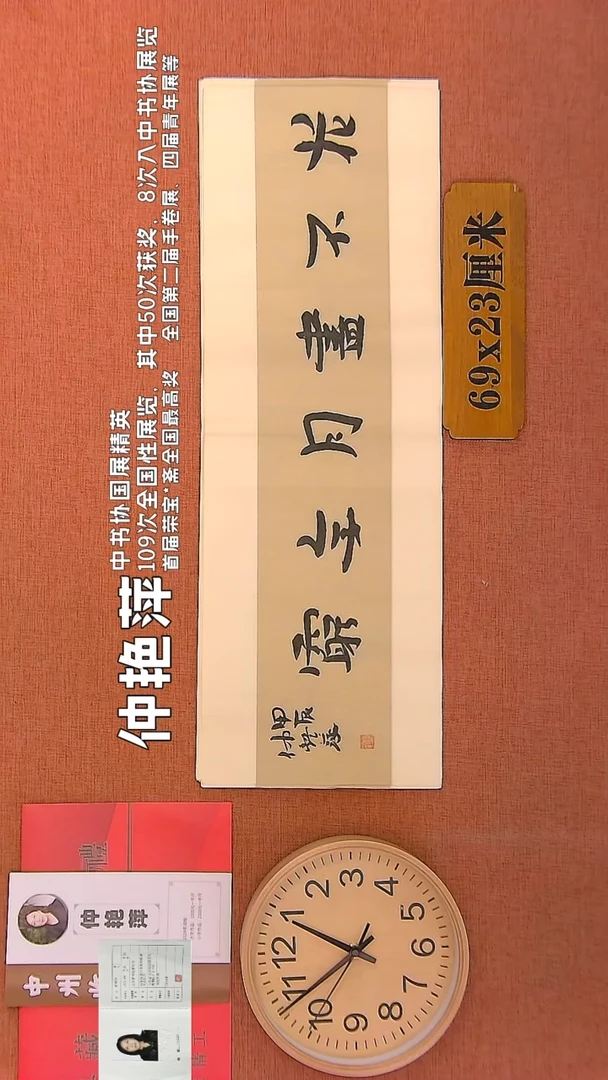 仲艳萍
中书协国展精英
109次全国性展览，其中50次获奖，8次入中书协展览
首届荣宝*斋全国最高奖 全国第二届手卷展、四届青年展等
花不盡月無窮
甲辰
69x23厘米
仲艳萍
中州
藏
12
1
2
3
4
5
6
7
8
9
10
11